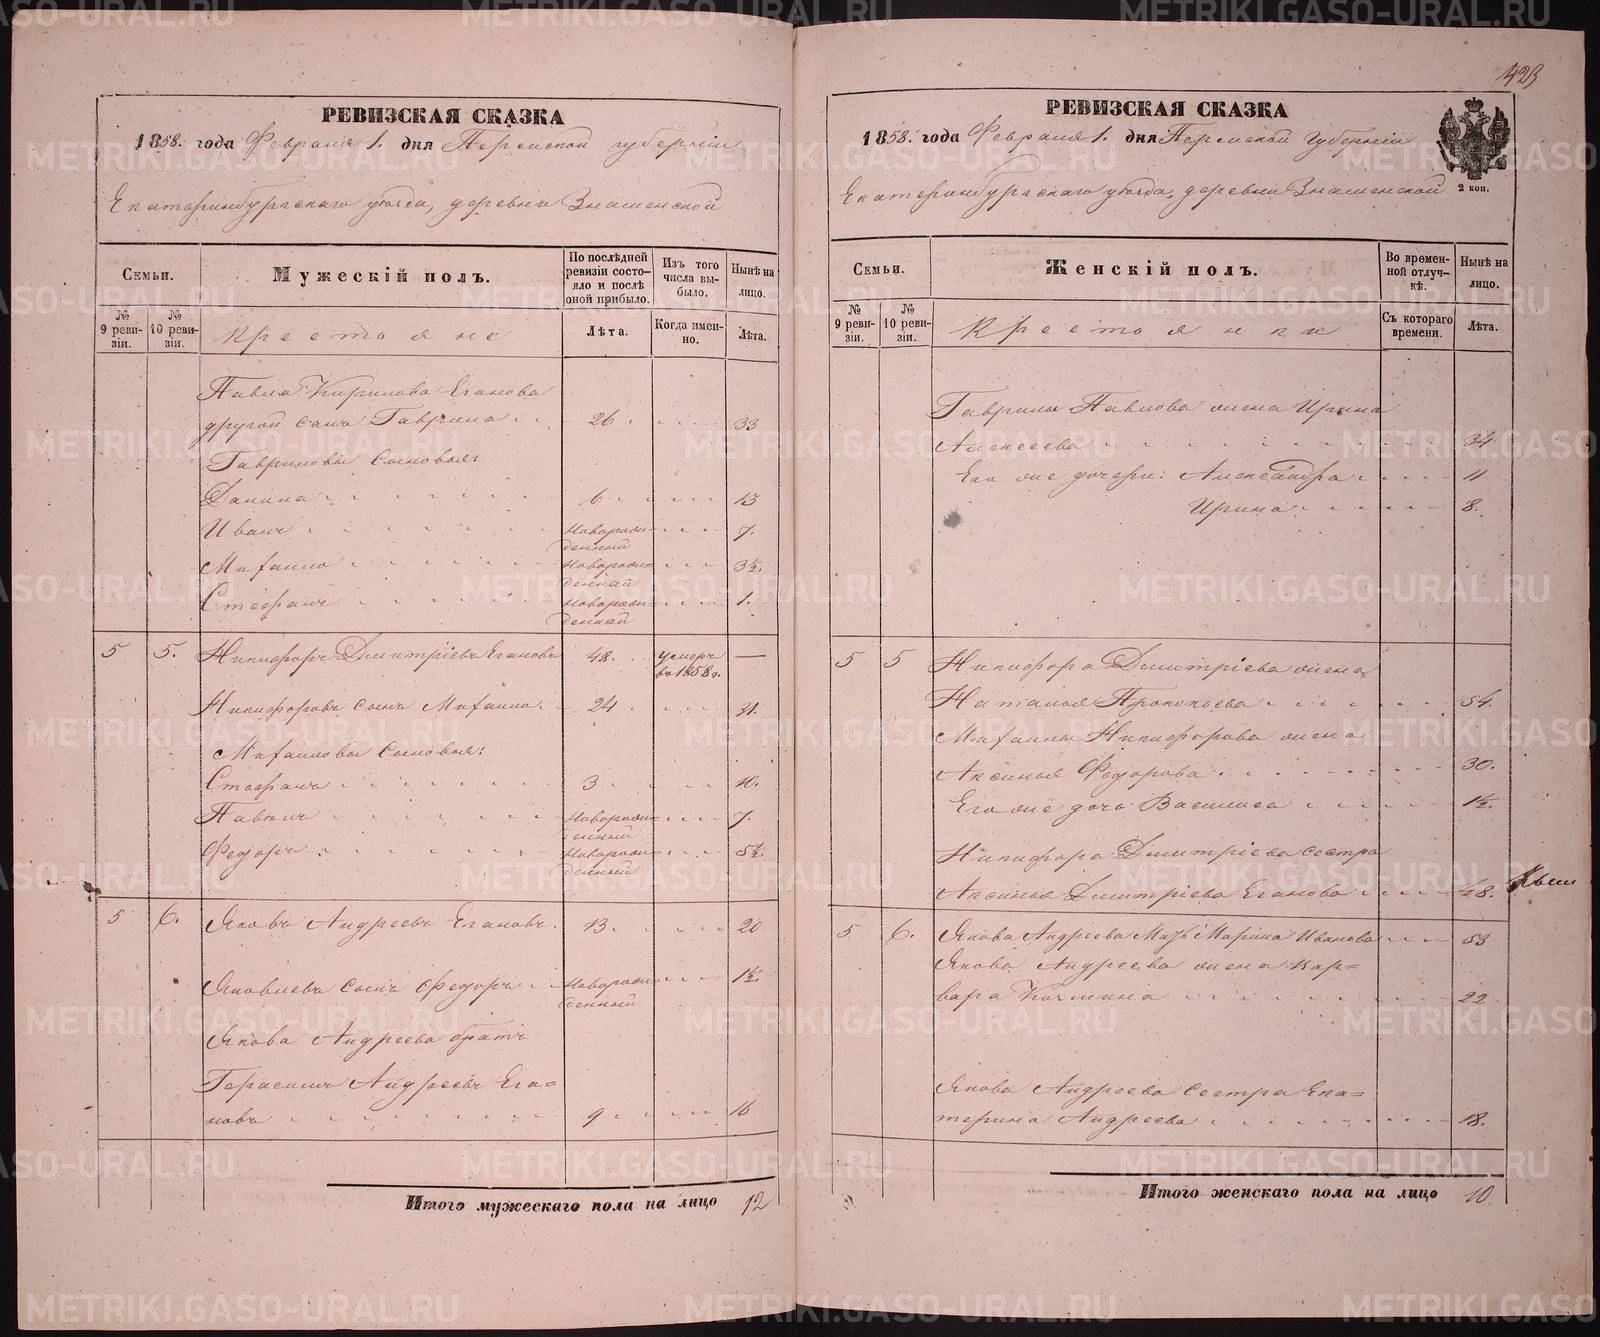 423
РЕВИЗСКАЯ СКАЗКА
1858. года Февраля 1. дня Пермской губернiи
Екатеринбургскаго уѣзда, деревни Знаменской
Семьи.
Мужескiй полъ.
По послѣдней ревизiи состояло и послѣ оной прибыло.
Изъ того числа выбыло.
Нынѣ на лицо.
№ 9 ревизiи.
№ 10 ревизiи.
Крестьяне
Лѣта.
Когда именно.
Лѣта.
Павла Кирилова Еганова
другой сынъ Гаврило 26 33
Гавриловы сыновья:
Данило 6 13
Иванъ новорожденный 7.
Михаило новорожденный 3½.
Стефанъ новорожденный 1.
5 5. Никифоръ Дмитрiевъ Егановъ 48. умеръ въ 1858 г. —
Никифоровъ сынъ Михаило 24 31.
Михаиловы сыновья:
Стефанъ 3 10.
Павелъ новорожденный 7.
Федоръ новорожденный 5½.
5 6. Яковъ Андреевъ Егановъ. 13. 20
Яковлевъ сынъ Федоръ новорожденный 1½.
Якова Андреева братъ
Герасимъ Андреевъ Ега=
новъ 9 16
Итого мужескаго пола на лицо 12
РЕВИЗСКАЯ СКАЗКА
1858. года Февраля 1. дня Пермской Губернiи
2 коп.
Екатеринбургскаго уѣзда, деревни Знаменской
Семьи.
Женскiй полъ.
Во временной отлучкѣ.
Нынѣ на лицо.
№ 9 ревизiи.
№ 10 ревизiи.
Крестьянки
Съ котораго времени.
Лѣта.
Гаврилы Павлова жена Ирина
Алексеева 34
Его же дочери: Александра 11
Ирина 8.
5 5 Никифора Дмитрiева жена
Наталья Прокопьева 54.
Михаилы Никифорова жена
Аксинья Федорова. 30.
Его же дочь Василиса 1½.
Никифора Дмитрiева сестра
Аксинья Дмитрiева Еганова 48.
5 6. Якова Андреева Мать Марина Иванова 53
Якова Андреева жена Вар=
вара Козмина 22
Якова Андреева сестра Ека=
терина Андреева 18.
Итого женскаго пола на лицо 10
METRIKI.GASO-URAL.RU